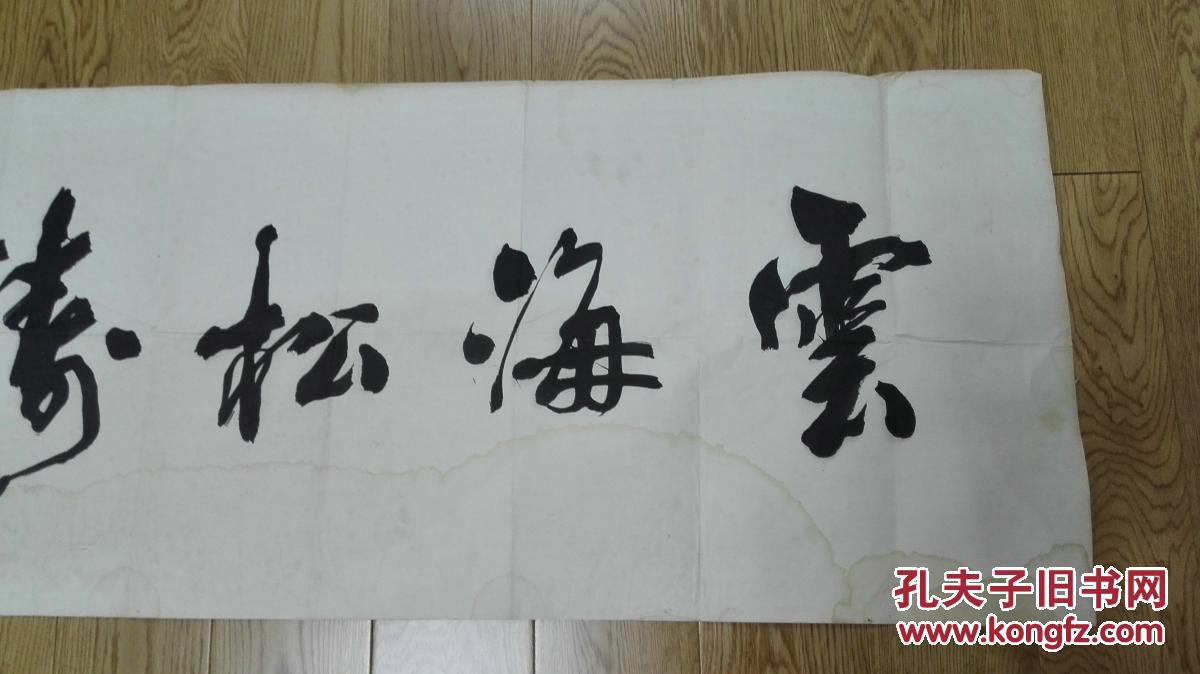 雲海松濤
孔夫子旧书网
www.kongfz.com